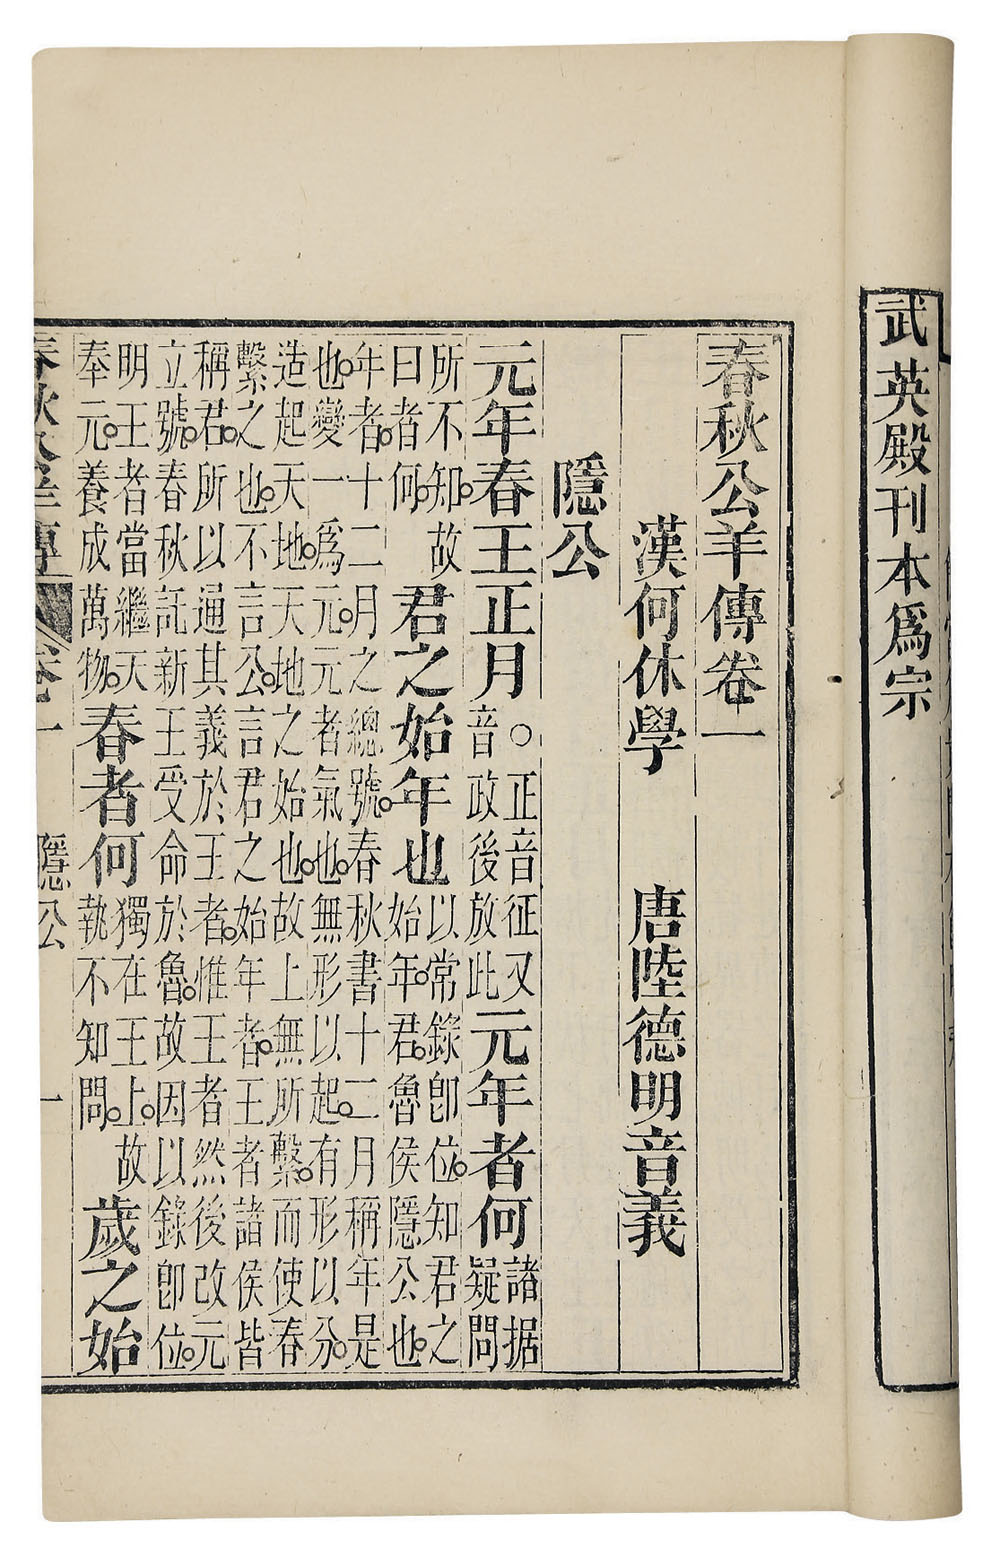 武英殿刊本爲宗
春秋公羊傳卷一
漢何休學 唐陸德明音義
隱公
元年春王正月。正音征又音政後放此元年者何諸据疑問
所不知故曰者何。君之始年也以常錄卽位。知君之始年。君。魯侯隱公也。
年者。十二月之總號。春秋書十二月稱年是也。變一爲元。元者氣也。無形以起。有形以分。
造起天地。天地之始也。故上無所繫。而使春繫之也。不言公。言君之始年者。王者諸侯皆
稱君。所以通其義於王者。惟王者然後改元立號。春秋託新王受命於魯。故因以錄卽位。
明王者當繼天奉元。養成萬物。春者何獨在王上。故執不知問。歲之始
春秋公羊傳 卷一 隱公 一